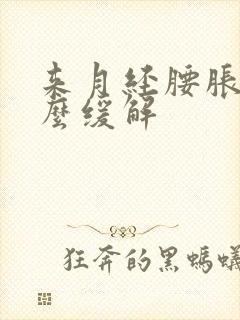 来月经腰胀
麼缓解
狂奔的黑蚂蟻